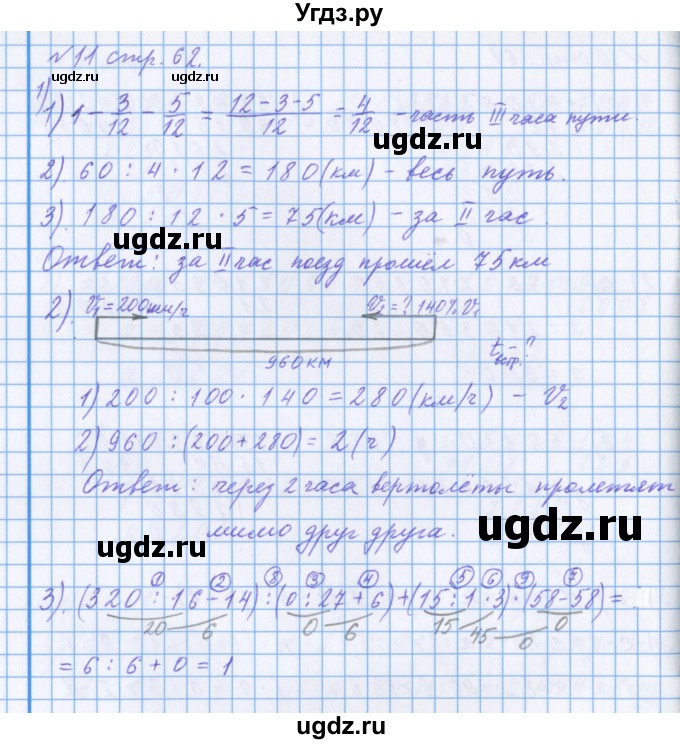 Угдз.ру
№11 стр. 62.
ugdz.ru ugdz.ru
1)
1) 1 - 3/12 - 5/12 = (12-3-5)/12 = 4/12 - часть III часа пути.
ugdz.ru
2). 60 : 4 · 12 = 180 (км) - весь путь.
3). 180 : 12 · 5 = 75 (км) - за II час.
ugdz.ru
Ответ: за II час поезд прошёл 75 км
2). V₁ = 200 км/ч V₂ = ? 140% V₁
ugdz.ru ugdz.ru
960 км tвстр. - ?
1) 200 : 100 · 140 = 280 (км/ч) - V₂
2) 960 : (200 + 280) = 2 (ч)
ugdz.ru
Ответ: через 2 часа вертолёты пролетят
мимо друг друга.
ugdz.ru
ugdz.ru
1 2 8 3 4 5 6 9 7
3). (320 : 16 - 14) : (0 : 27 + 6) + (15 : 1 · 3) · (58 - 58) =
20 6 0 6 15 45 0 0
= 6 : 6 + 0 = 1
ugdz.ru ugdz.ru
ugdz.ru